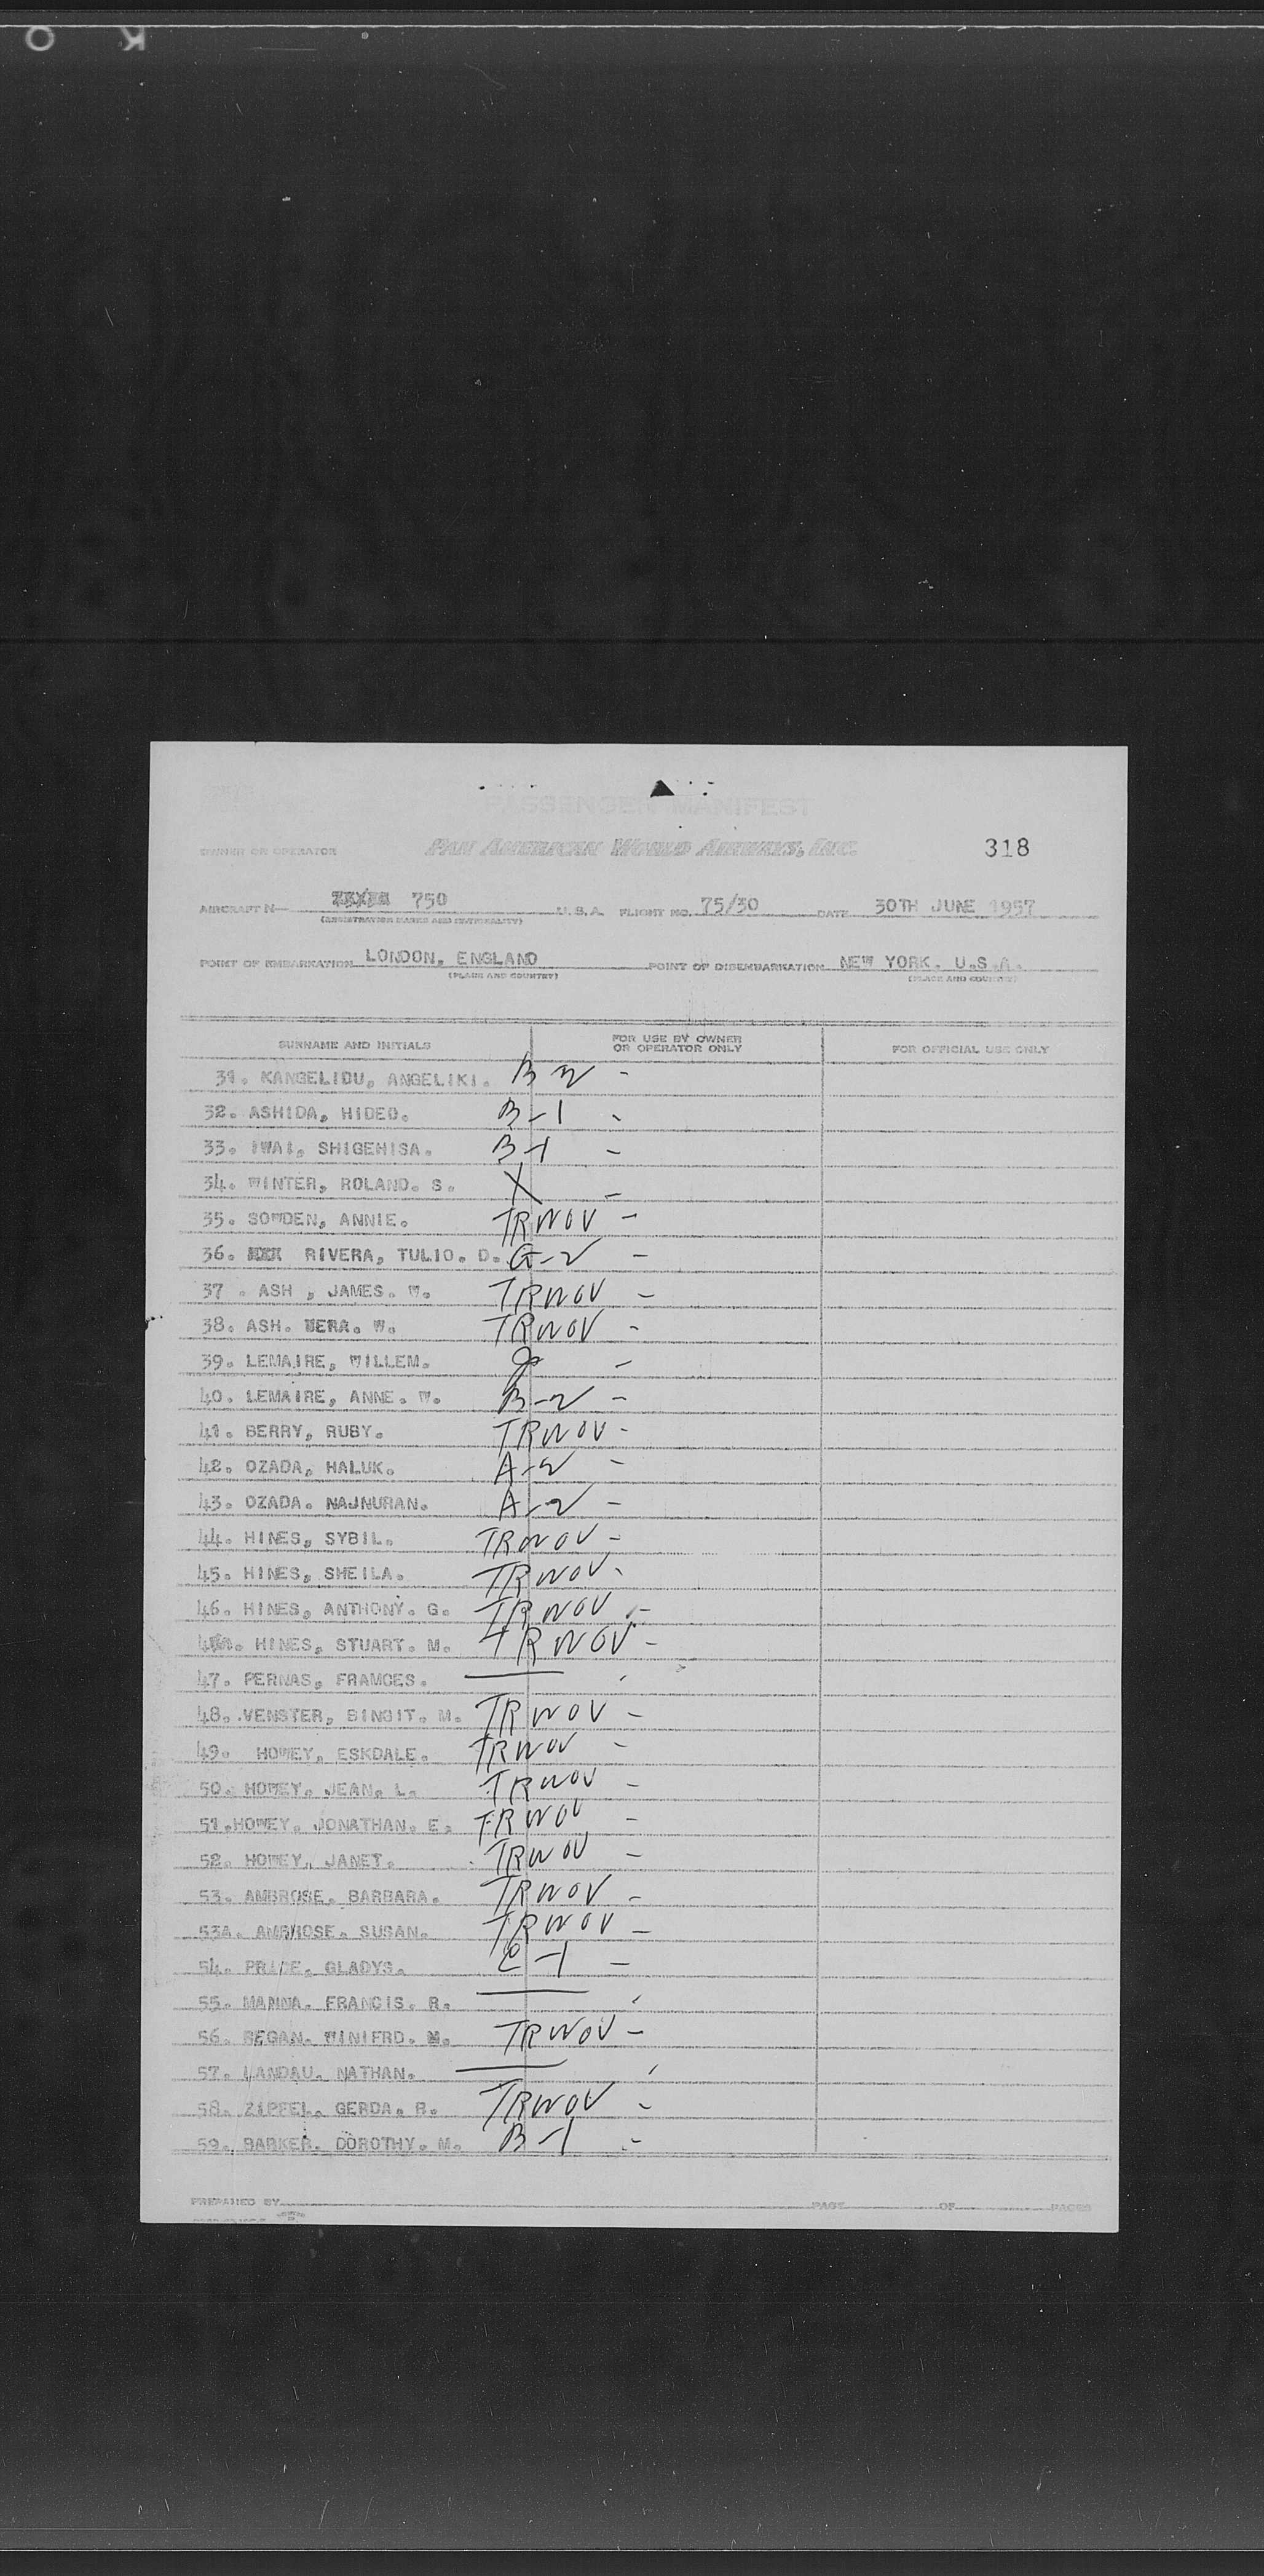 K O
PASSENGER MANIFEST
OWNER OR OPERATOR PAN AMERICAN WORLD AIRWAYS, INC. 318
AIRCRAFT N— 750 U.S.A. FLIGHT NO. 75/30 DATE 30TH JUNE 1957
(REGISTRATION MARKS AND NATIONALITY)
POINT OF EMBARKATION LONDON, ENGLAND POINT OF DISEMBARKATION NEW YORK. U.S.A.
(PLACE AND COUNTRY) (PLACE AND COUNTRY)
SURNAME AND INITIALS FOR USE BY OWNER OR OPERATOR ONLY FOR OFFICIAL USE ONLY
31. KANGELIDU, ANGELIKI. B-2 -
32. ASHIDA, HIDEO. B-1 -
33. IWAI, SHIGEHISA. B-1 -
34. WINTER, ROLAND. S. X -
35. SOWDEN, ANNIE. TRWOV -
36. RIVERA, TULIO. D. G-2 -
37 . ASH , JAMES. W. TRWOV -
38. ASH. VERA. W. TRWOV -
39. LEMAIRE, WILLEM. -
40. LEMAIRE, ANNE. W. B-2 -
41. BERRY, RUBY. TRWOV -
42. OZADA, HALUK. A-2 -
43. OZADA. NAJNURAN. A-2 -
44. HINES, SYBIL. TRWOV -
45. HINES, SHEILA. TRWOV -
46. HINES, ANTHONY. G. TRWOV -
HINES, STUART. M. TRWOV -
47. PERNAS, FRAMCES. —
48. VENSTER, BINGIT. M. TRWOV -
49. HOWEY, ESKDALE. TRWOV -
50. HOWEY, JEAN, L. TRWOV -
51.HOWEY. JONATHAN. E. TRWOV -
52. HOWEY, JANET. TRWOV -
53. AMBROSE. BARBARA. TRWOV -
53A. AMBROSE. SUSAN. TRWOV -
54. PRICE. GLADYS. -1 -
55. MANNA. FRANCIS. R. —
56. REGAN. WINIFRD. M. TRWOV -
57. LANDAU. NATHAN. —
58. ZIPPEL, GERDA. R. TRWOV -
59. BARKER. DOROTHY. M. B-1 -
PREPARED BY PAGE OF PAGES